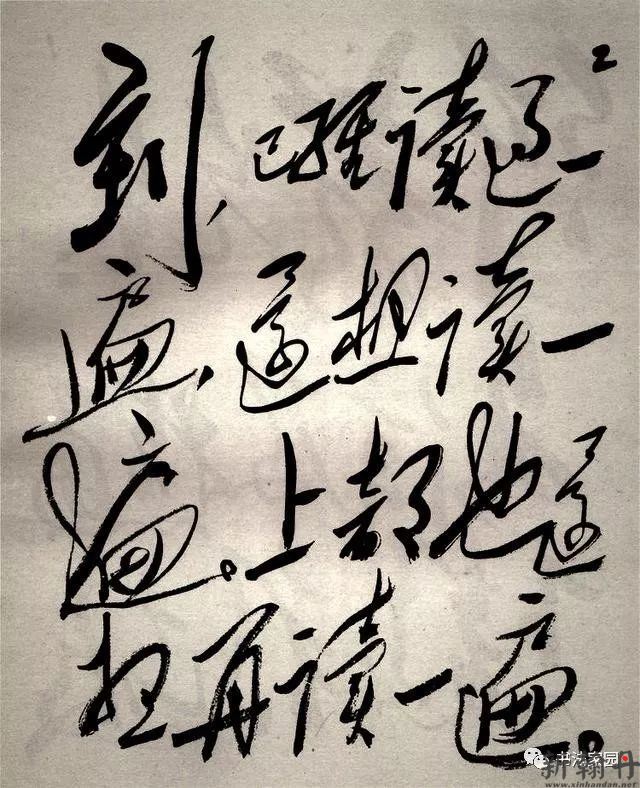 2
到，已经读过一
遍，还想读一
遍。上部也还
想再读一遍。
书法家园
新翰丹
www.xinhandan.net